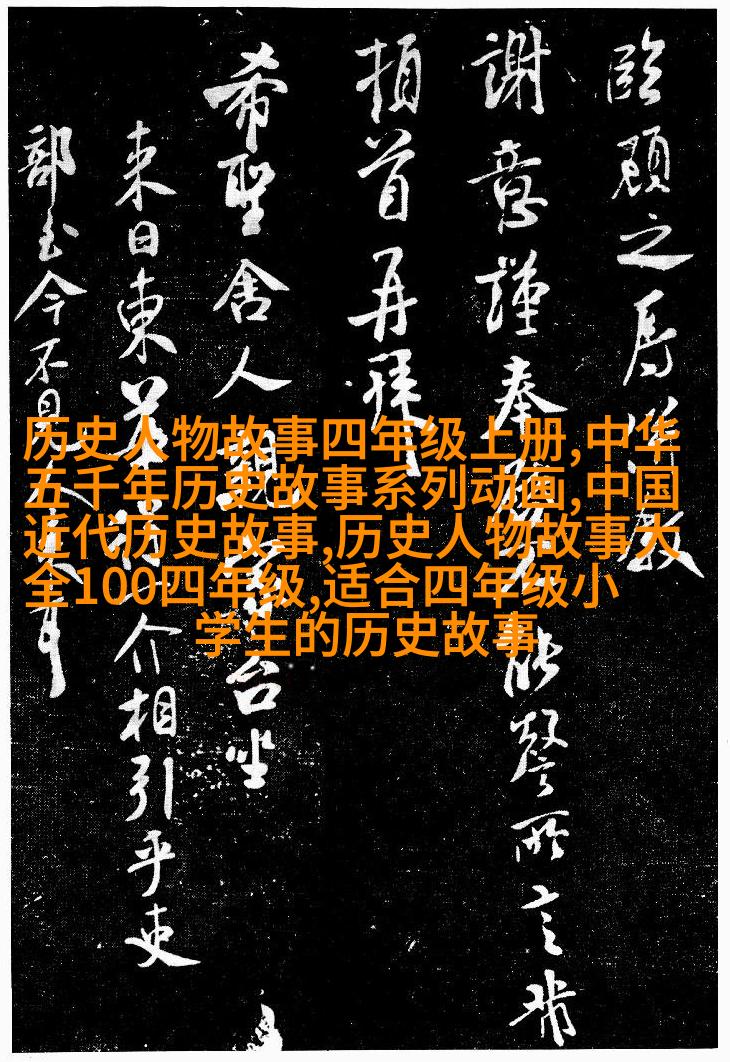 历史人物故事四年级上册,中华
五千年历史故事系列动画,中国
近代历史故事,历史人物故事大
全100四年级,适合四年级小
学生的历史故事
臨顧之辱
謝意謹奉能罄所言
頓首再拜
希聖舍人親台坐
来日東介相引乎吏
部玉今不見